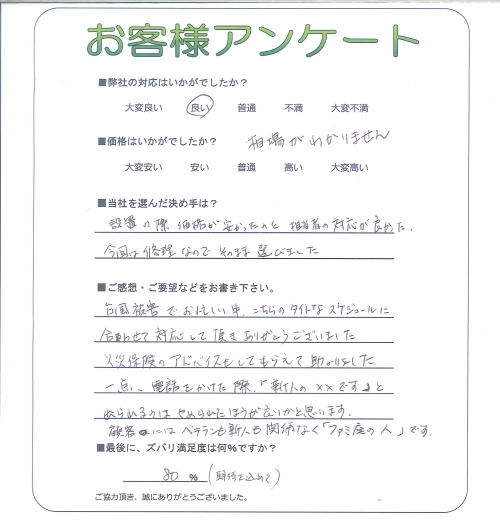 お客様アンケート
■弊社の対応はいかがでしたか？
大変良い　良い　普通　不満　大変不満
■価格はいかがでしたか？　相場がわかりません
大変安い　安い　普通　高い　大変高い
■当社を選んだ決め手は？
設置の際 価格が安かったのと 担当者の対応が良かった.
今回は修理なので そのまま選びました
■ご感想・ご要望などをお書き下さい。
台風被害でお忙しい中、こちらのタイトなスケジュールに
合わせて対応して頂きありがとうございました
火災保険のアドバイスもしてもらえて助かりました
一点、電話をかけた際、「新人の××です」と
名のられるのはやめられたほうが良いかと思います.
顧客にはベテランも新人も関係なく「ファミ産の人」です.
■最後に、ズバリ満足度は何%ですか？
80 %（期待を込めて）
ご協力頂き、誠にありがとうございました。